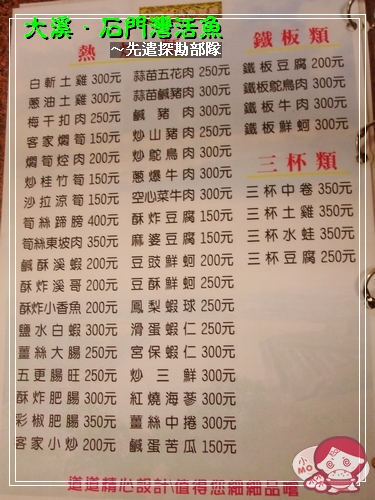 大溪．石門灣活魚
～先遣探勘部隊
熱
白斬土雞 300元
蔥油土雞 300元
梅干扣肉 250元
客家燜筍 150元
燜筍焢肉 200元
炒桂竹筍 150元
沙拉涼筍 150元
筍絲蹄膀 400元
筍絲東坡肉 350元
鹹酥溪蝦 200元
酥炸溪哥 200元
酥炸小香魚 200元
鹽水白蝦 300元
薑絲大腸 250元
五更腸旺 250元
酥炸肥腸 300元
彩椒肥腸 350元
客家小炒 200元
蒜苗五花肉 250元
蒜苗鹹豬肉 300元
鹹豬肉 300元
炒山豬肉 250元
炒鴕鳥肉 300元
蔥爆牛肉 300元
空心菜牛肉 300元
酥炸豆腐 150元
麻婆豆腐 150元
豆豉鮮蚵 200元
豆酥鮮蚵 250元
鳳梨蝦球 250元
滑蛋蝦仁 250元
宮保蝦仁 300元
炒三鮮 300元
紅燒海蔘 300元
薑絲中捲 300元
鹹蛋苦瓜 150元
鐵板類
鐵板豆腐 200元
鐵板鴕鳥肉 300元
鐵板牛肉 300元
鐵板鮮蚵 300元
三杯類
三杯中卷 350元
三杯土雞 350元
三杯水蛙 350元
三杯豆腐 250元
道道精心設計 值得您細細品嚐
小
MO